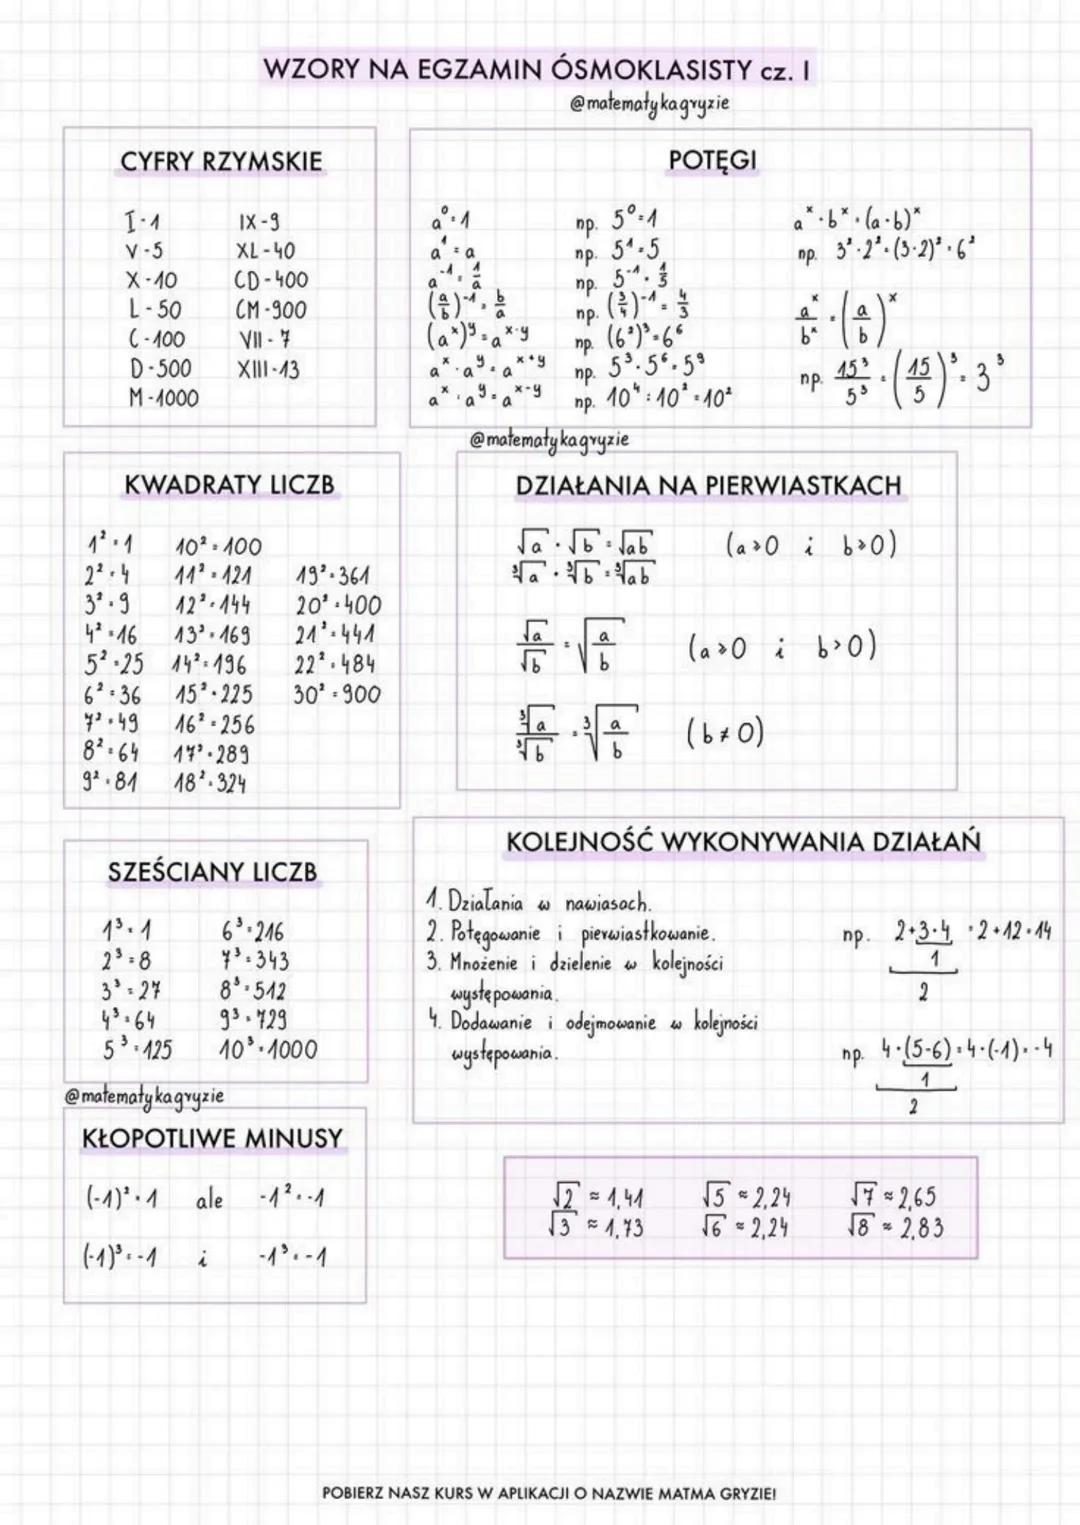 WZORY NA EGZAMIN ÓSMOKLASISTY cz. I
@matematykagryzie
CYFRY RZYMSKIE
I - 1    IX - 9
V - 5    XL - 40
X - 10    CD - 400
L - 50    CM - 900
C - 100    VII - 7
D - 500    XIII - 13
M - 1000
POTĘGI
a⁰ = 1    np. 5⁰ = 1
a¹ = a    np. 5¹ = 5
a⁻¹ = 1/a    np. 5⁻¹ = 1/5
(a/b)⁻¹ = b/a    np. (3/4)⁻¹ = 4/3
(aˣ)ʸ = aˣ·ʸ    np. (6²)³ = 6⁶
aˣ · aʸ = aˣ⁺ʸ    np. 5³ · 5⁶ = 5⁹
aˣ : aʸ = aˣ⁻ʸ    np. 10⁴ : 10² = 10²
aˣ · bˣ = (a·b)ˣ
np. 3² · 2² = (3·2)² = 6²
aˣ/bˣ = (a/b)ˣ
np. 15³/5³ = (15/5)³ = 3³
@matematykagryzie
KWADRATY LICZB
1² = 1    10² = 100
2² = 4    11² = 121    19² = 361
3² = 9    12² = 144    20² = 400
4² = 16    13² = 169    21² = 441
5² = 25    14² = 196    22² = 484
6² = 36    15² = 225    30² = 900
7² = 49    16² = 256
8² = 64    17² = 289
9² = 81    18² = 324
DZIAŁANIA NA PIERWIASTKACH
√a · √b = √ab    (a ≥ 0 i b ≥ 0)
∛a · ∛b = ∛ab
√a/√b = √(a/b)    (a ≥ 0 i b > 0)
∛a/∛b = ∛(a/b)    (b ≠ 0)
SZEŚCIANY LICZB
1³ = 1    6³ = 216
2³ = 8    7³ = 343
3³ = 27    8³ = 512
4³ = 64    9³ = 729
5³ = 125    10³ = 1000
@matematykagryzie
KOLEJNOŚĆ WYKONYWANIA DZIAŁAŃ
1. Działania w nawiasach.
2. Potęgowanie i pierwiastkowanie.
3. Mnożenie i dzielenie w kolejności
występowania.
4. Dodawanie i odejmowanie w kolejności
występowania.
np. 2+3·4 = 2+12 = 14
1
2
np. 4·(5-6) = 4·(-1) = -4
1
2
KŁOPOTLIWE MINUSY
(-1)² = 1    ale    -1² = -1
(-1)³ = -1    i    -1³ = -1
√2 ≈ 1,41    √5 ≈ 2,24    √7 ≈ 2,65
√3 ≈ 1,73    √6 ≈ 2,24    √8 ≈ 2,83
POBIERZ NASZ KURS W APLIKACJI O NAZWIE MATMA GRYZIE!